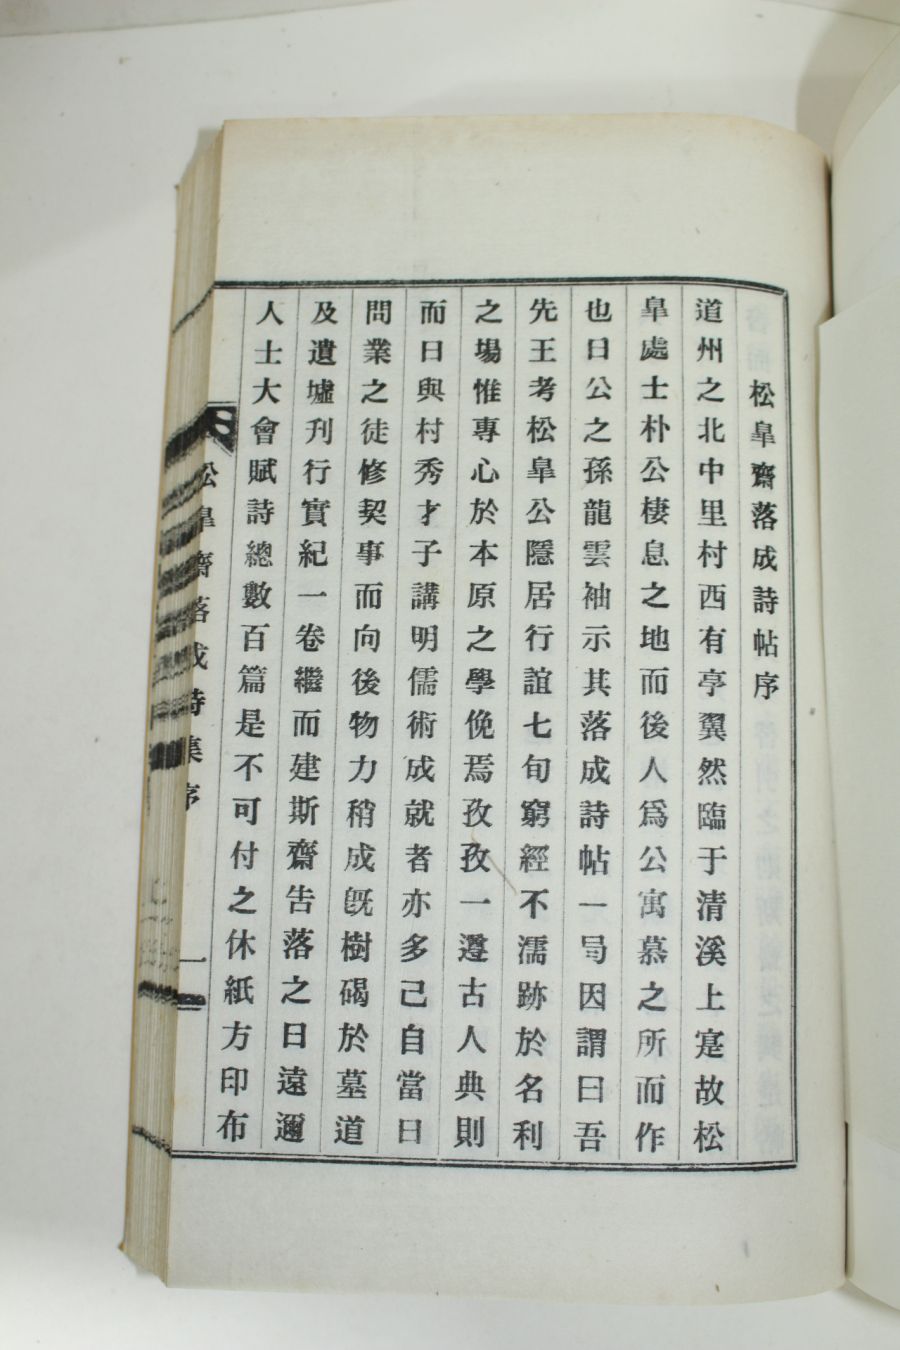 松皐齋落成詩帖序
道州之北中里村西有亭翼然臨于清溪上寔故松
皐處士朴公棲息之地而後人爲公寓慕之所而作
也日公之孫龍雲袖示其落成詩帖一局因謂曰吾
先王考松皐公隱居行誼七旬窮經不濡跡於名利
之場惟專心於本原之學俛焉孜孜一遵古人典則
而日與村秀才子講明儒術成就者亦多己自當日
問業之徒修契事而向後物力稍成旣樹碣於墓道
及遺墟刊行實紀一卷繼而建斯齋告落之日遠邇
人士大會賦詩總數百篇是不可付之休紙方印布
松皐齋落成詩集序
一